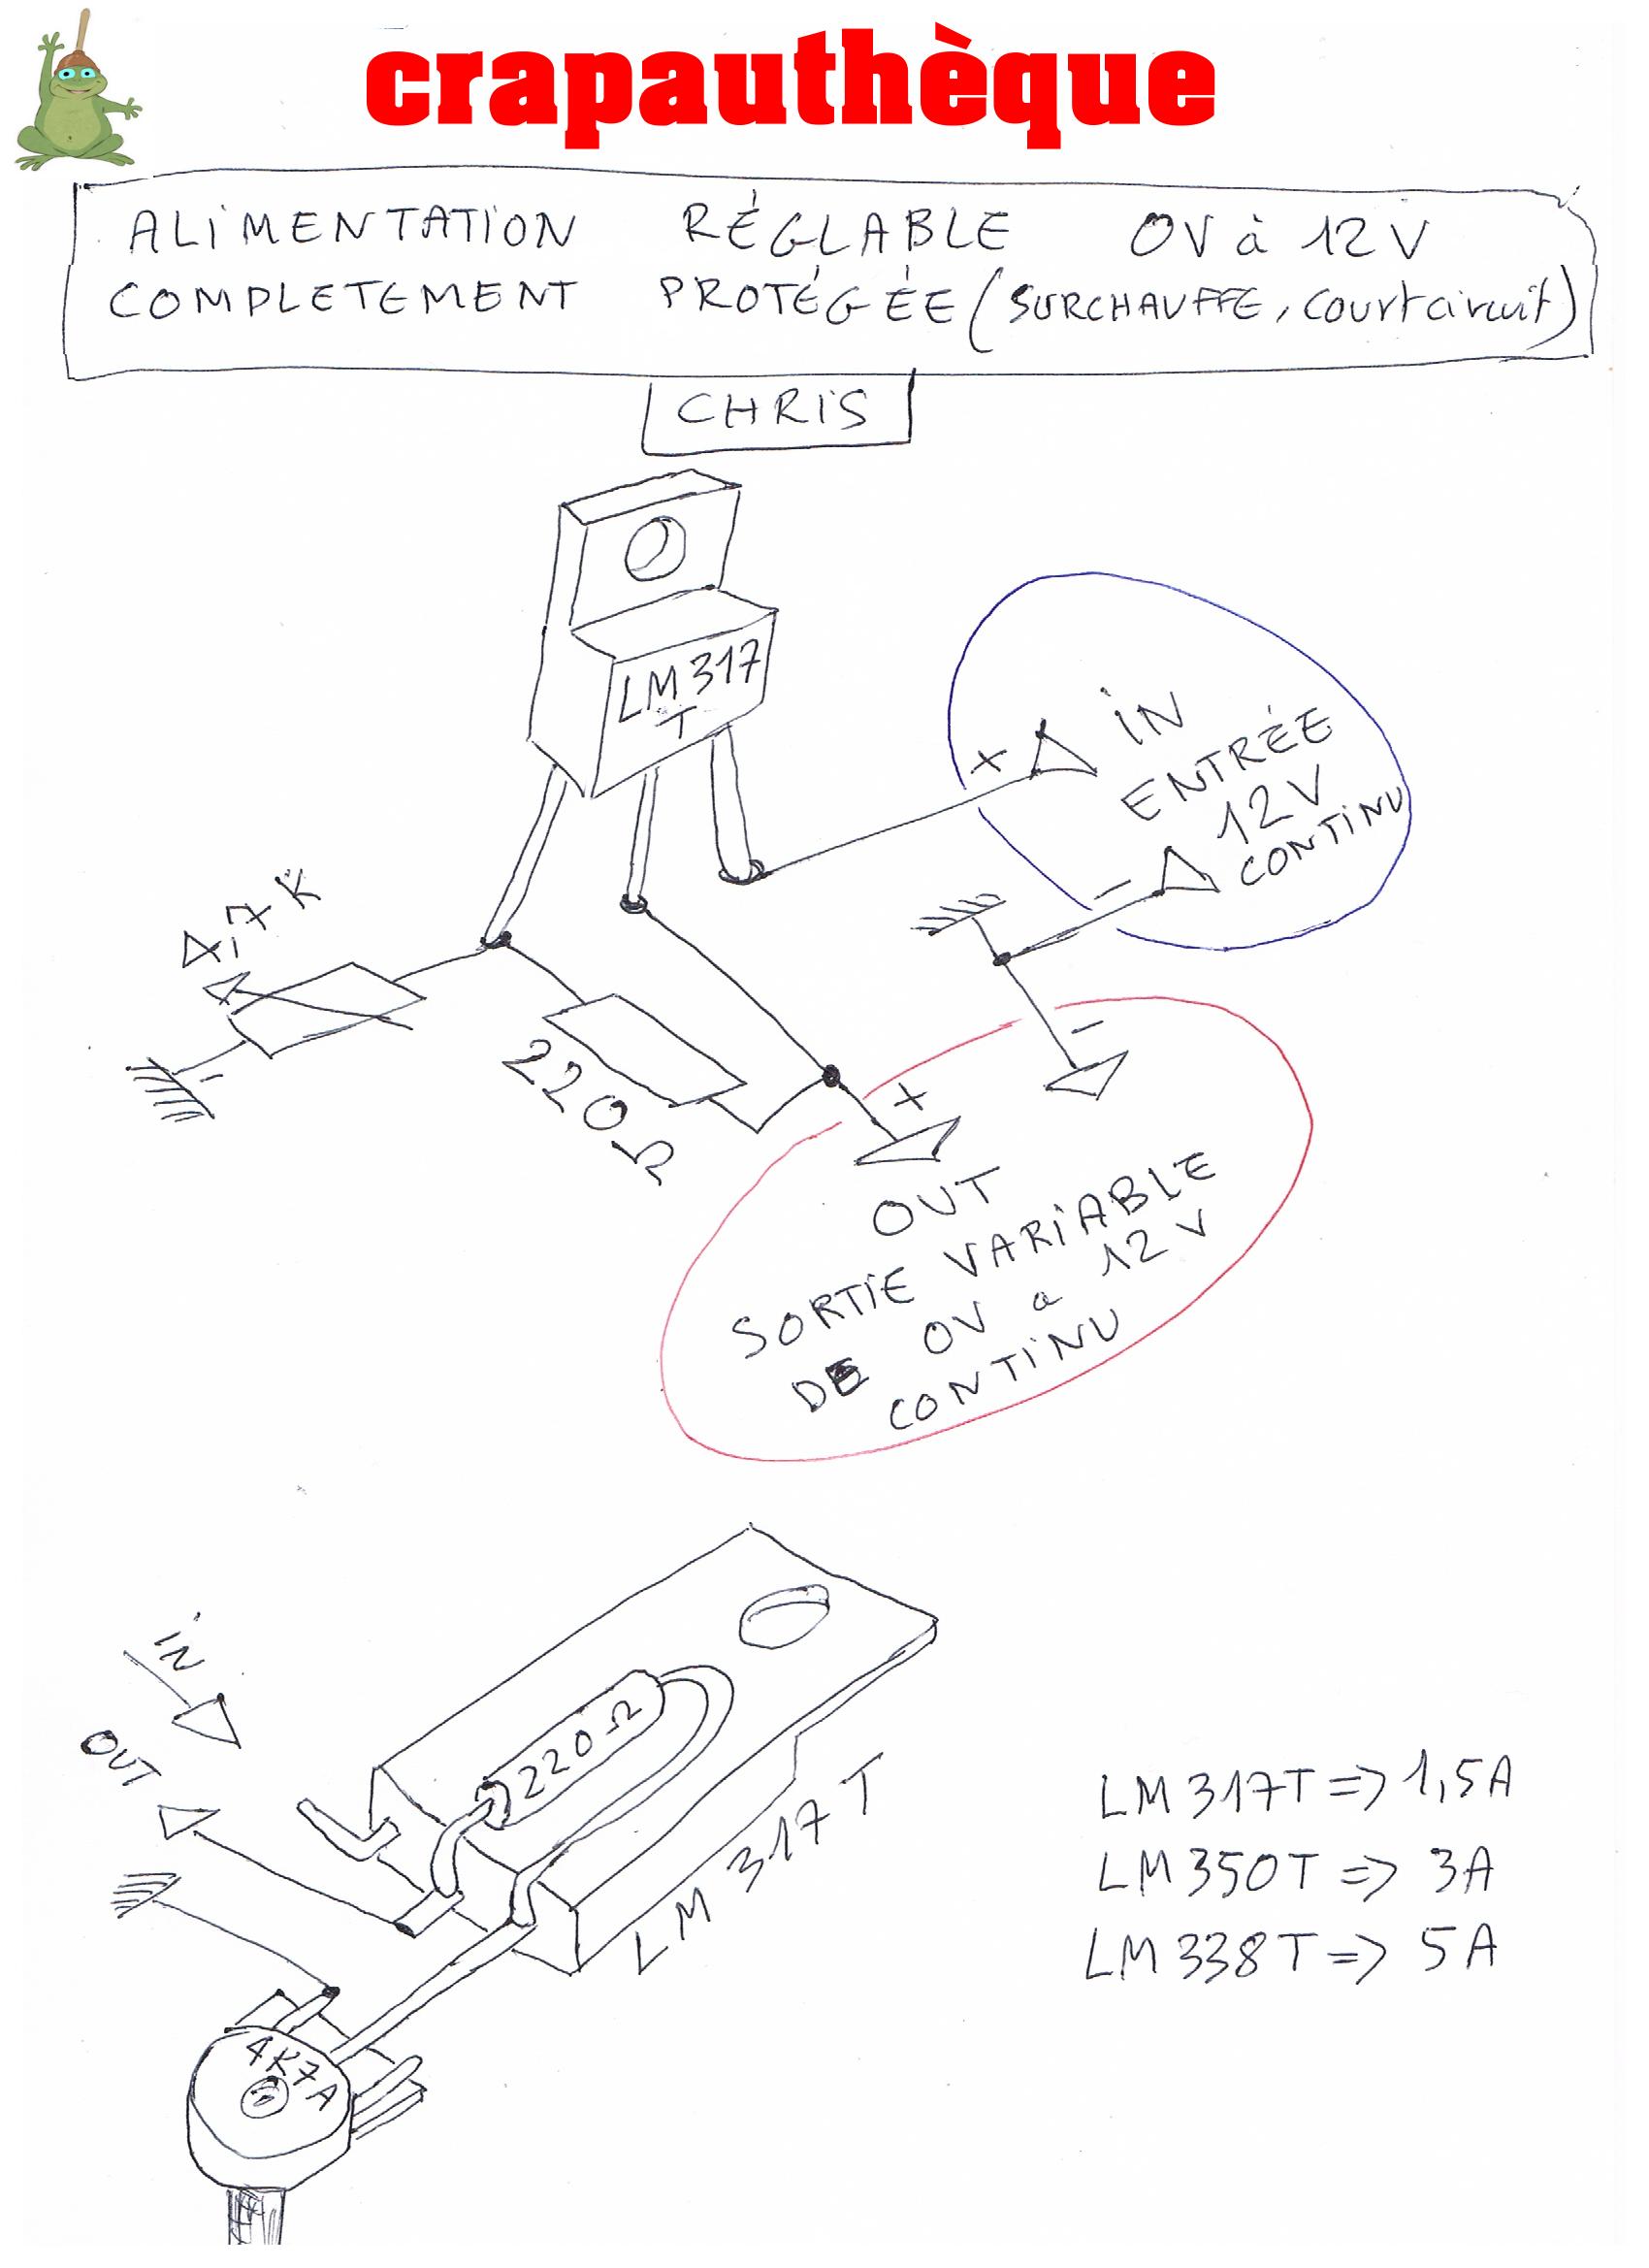 crapauthèque
ALIMENTATION RÉGLABLE 0V à 12V
COMPLETEMENT PROTÉGÉE (SURCHAUFFE, courtcircuit)
CHRIS
LM317
T
+ IN
ENTRÉE
12V
CONTINU
-
4,7K
-
220Ω
-
+
OUT
SORTIE VARIABLE
DE 0V a 12V
CONTINU
IN
OUT
220Ω
LM317T
4K7A
LM317T => 1,5A
LM350T => 3A
LM338T => 5A